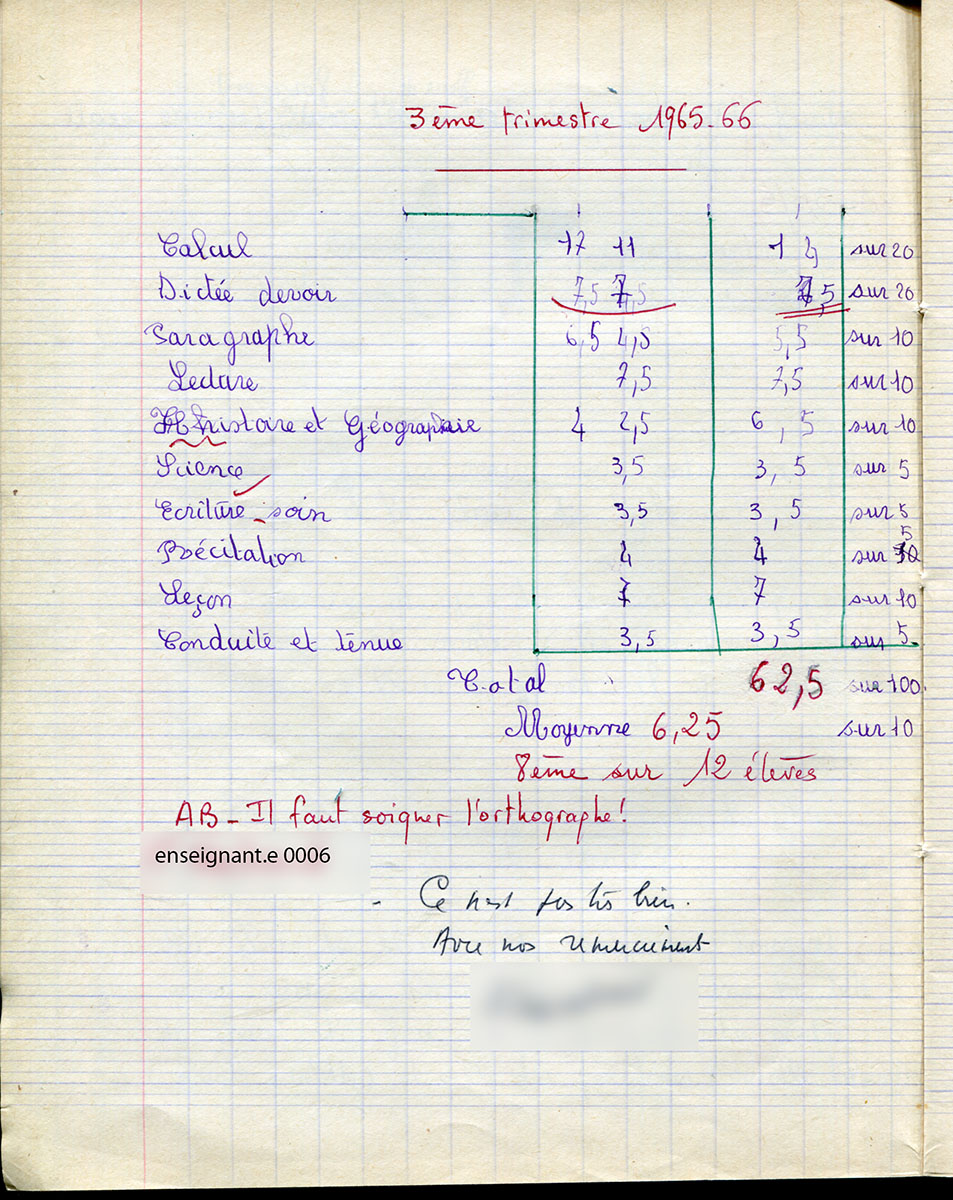 3ème trimestre 1965-66
Calcul 17 11 14 sur 20
Dictée devoir 7,5 7,5 7,5 sur 20
Paragraphe 6,5 4,5 5,5 sur 10
Lecture 7,5 7,5 sur 10
histoire et Géographie 4 2,5 6,5 sur 10
Science 3,5 3,5 sur 5
Ecriture - soin 3,5 3,5 sur 5
Récitation 4 4 sur 5
Leçon 7 7 sur 10
Conduite et tenue 3,5 3,5 sur 5
Total 62,5 sur 100
Moyenne 6,25 sur 10
8ème sur 12 élèves
AB - Il faut soigner l'orthographe!
enseignant.e 0006
- Ce n'est pas très bien.
Avec nos remerciement